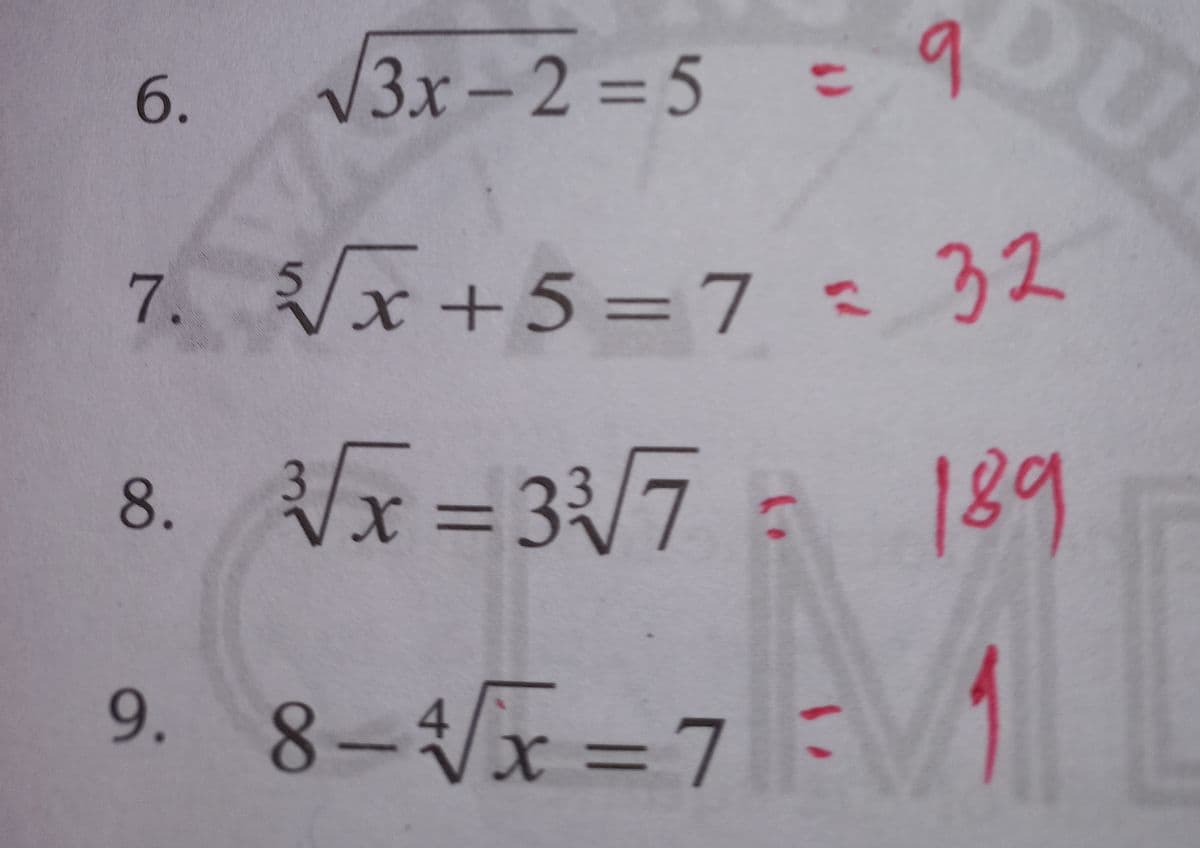 6. √3x-2 = 5 = 9
7. ⁵√x + 5 = 7 = 32
8. ³√x = 3³√7 = 189
9. 8-⁴√x = 7 = 1